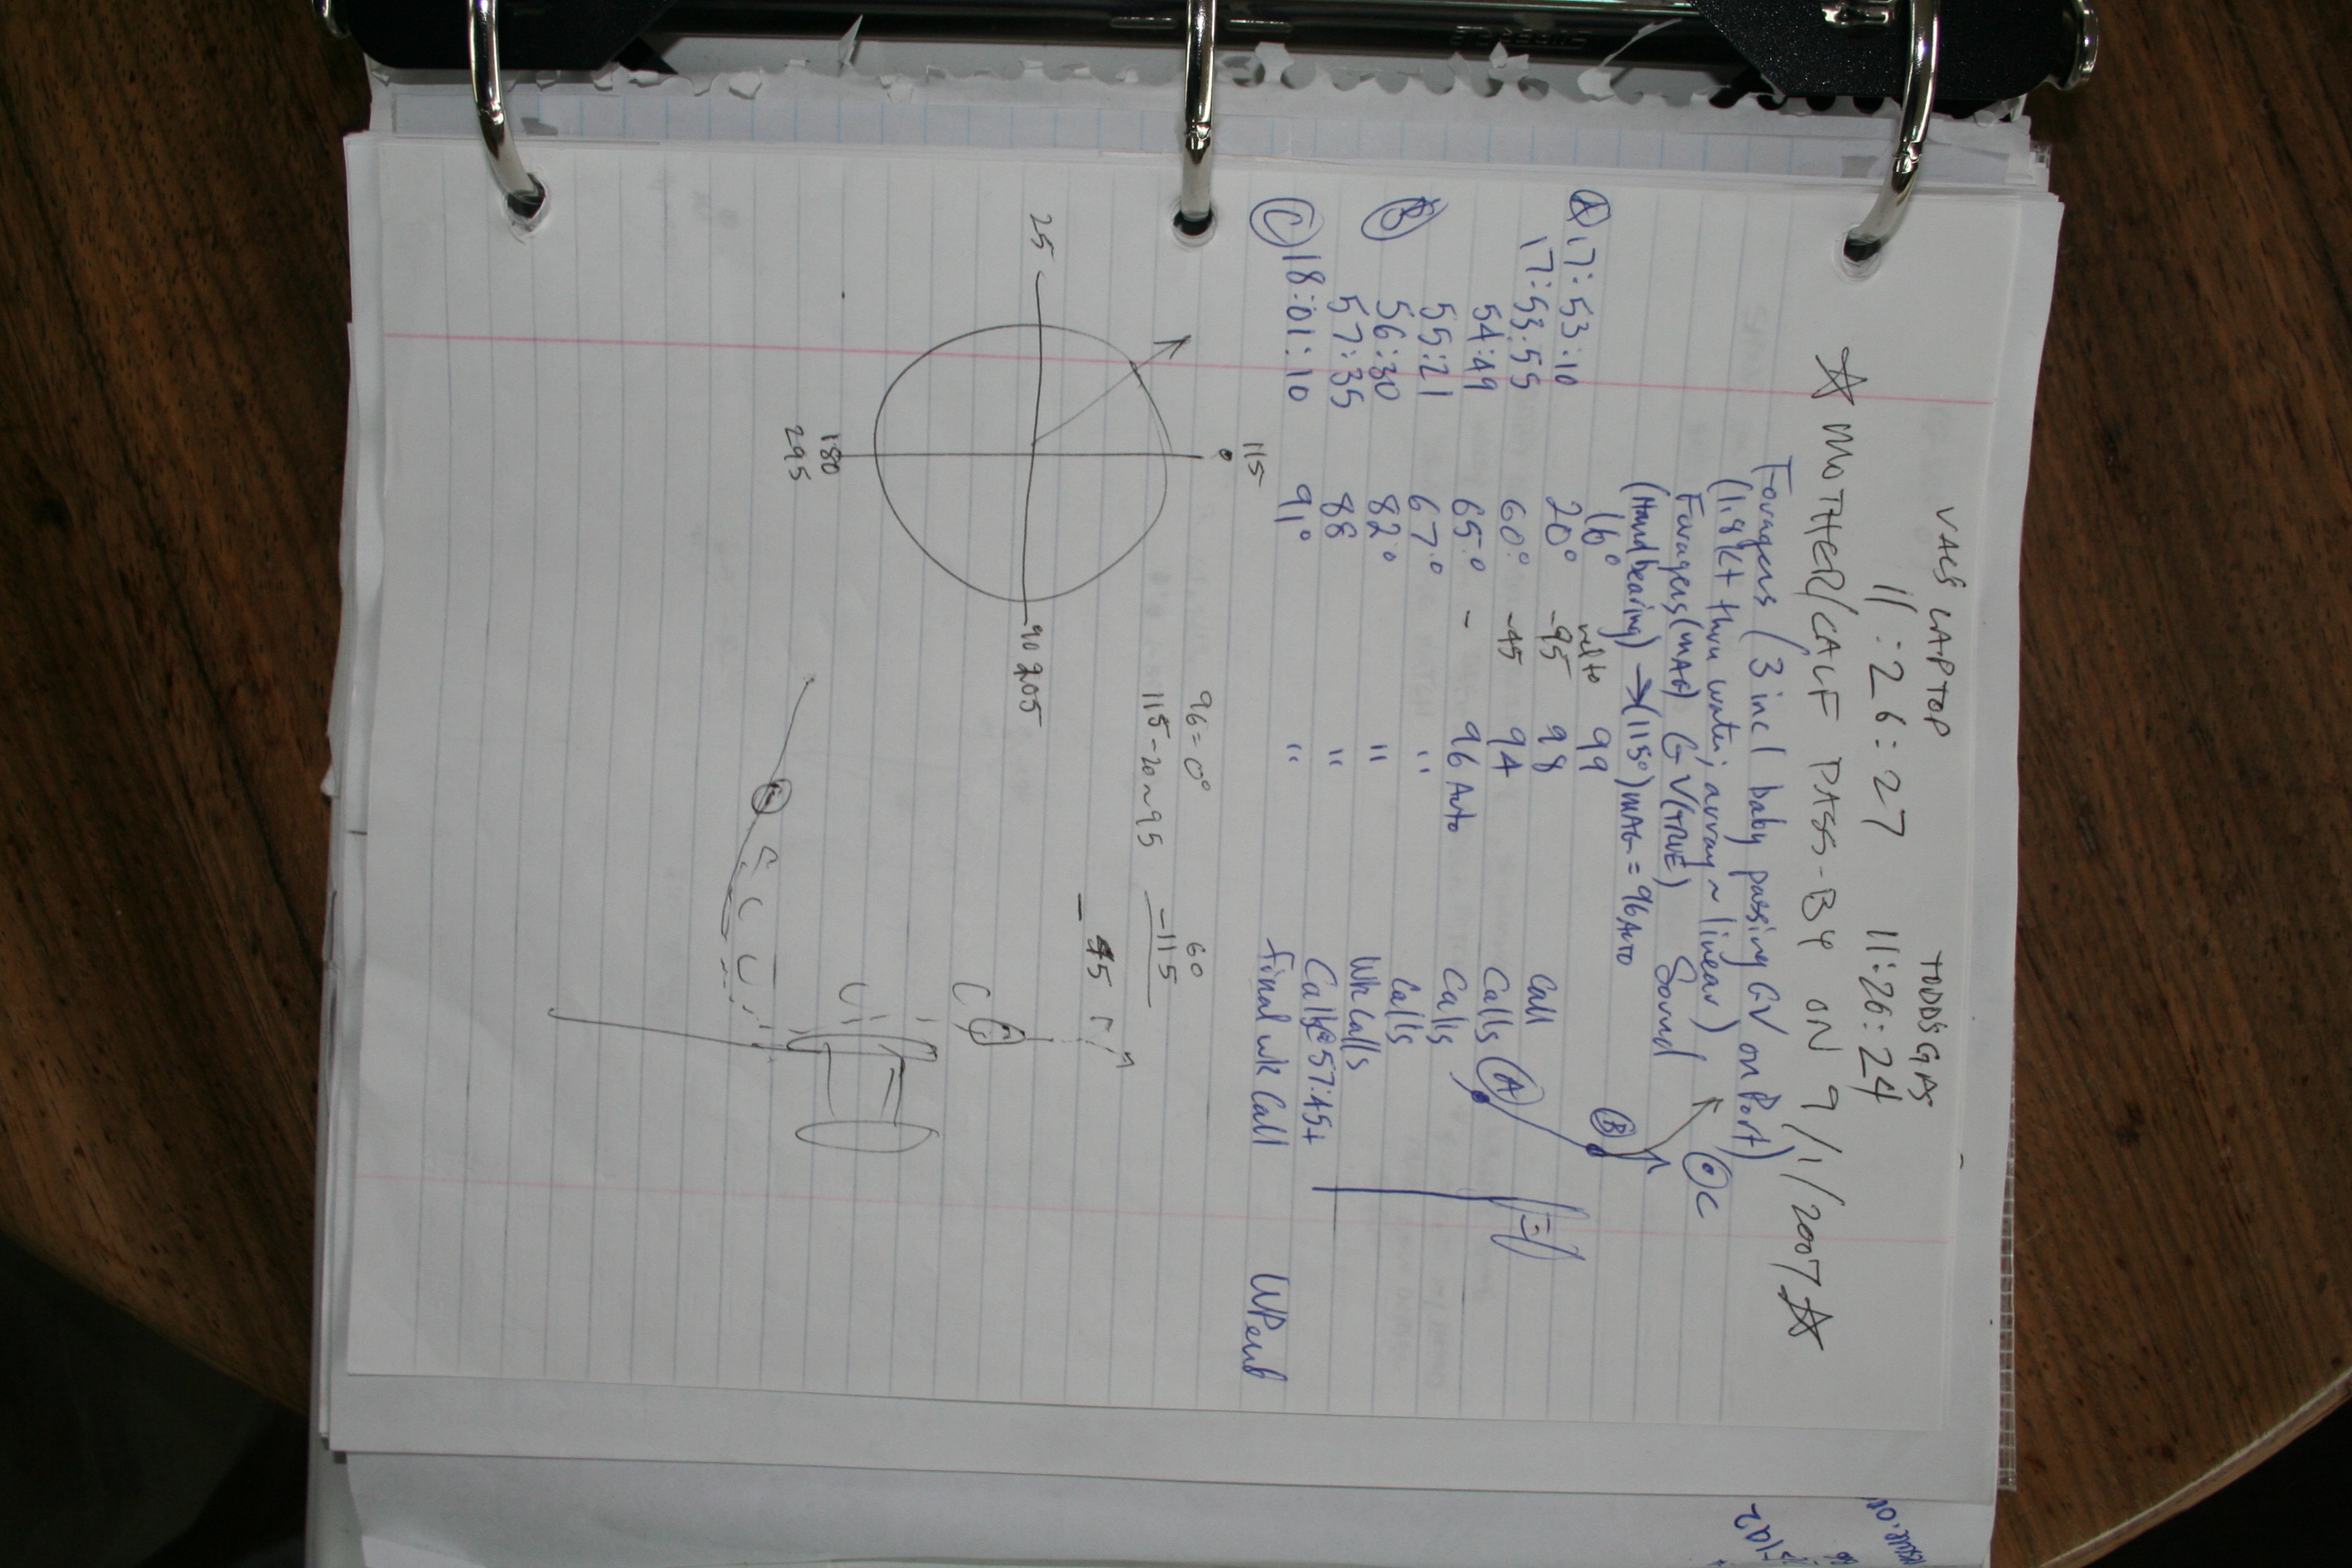 VALS LAPTOP TODDS GPS
11:26:27 11:26:24
☆ MOTHER/CALF PASS-BY ON 9/1/2007 ☆
Foragers (3 incl baby passing GV on Port)
(1.8kt thru water; array ~ linear)
Foragers(MAG) GV(TRUE) Sound
(Hand bearing) → (115°)MAG = 96 Auto
16° rel to 99
Ⓐ 17:53:10 20° -95 98 Call
17:53:55 60° -45 94 Calls
54:49 65° - 96 Auto Calls
55:21 67° " Calls
Ⓑ 56:30 82° " Wk Calls
57:35 88 " Calls@57:45+
Ⓒ 18:01:10 91° " final wk Call WPend
Ⓐ
Ⓑ
C
115
96=0°
115-20~95
60
-115
-45
25
90 205
180
295